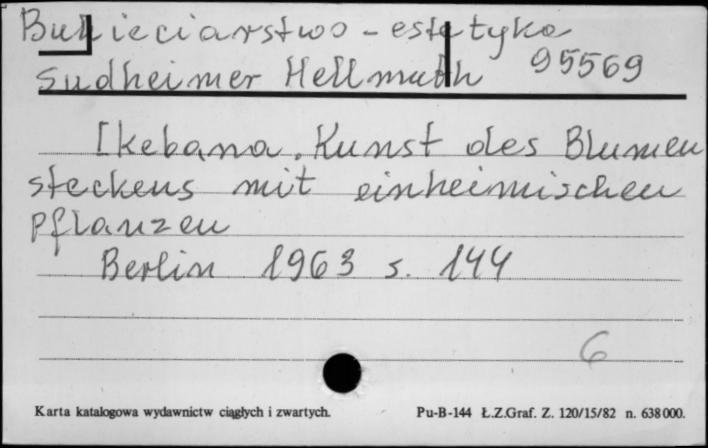 Bukieciarstwo - estetyka
Sudheimer Hellmuth 95569
Ikebana. Kunst des Blumen
steckens mit einheimischen
Pflanzen
Berlin 1963 s. 144
6
Karta katalogowa wydawnictw ciągłych i zwartych. Pu-B-144 Ł.Z.Graf. Z. 120/15/82 n. 638000.